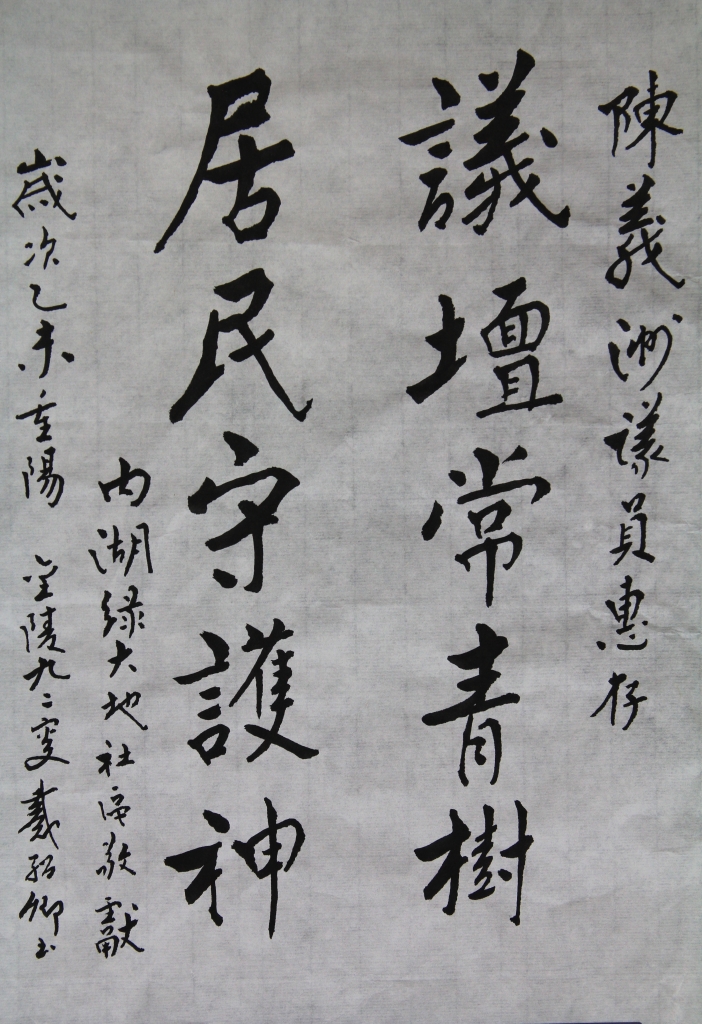 陳義洲議員惠存
議壇常青樹
居民守護神
內湖綠大地社區敬獻
歲次乙未重陽 金陵九二叟戴紹卿書